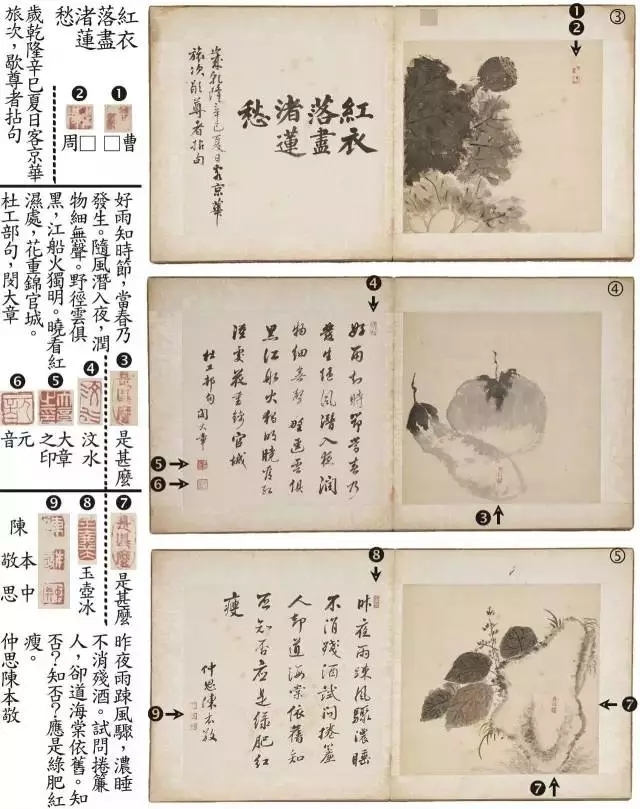 紅衣
落盡
渚蓮
愁
歲乾隆辛巳夏日客京華
旅次，歇尊者拈句
❶
曹□
❷
周□
好雨知時節，當春乃
發生。隨風潛入夜，潤
物細無聲。野徑雲俱
黑，江船火獨明。曉看紅
濕處，花重錦官城。
杜工部句，閔大章
❸
是甚麼
❹
汶水
❺
大章
之印
❻
元
音
❼
是甚麼
❽
玉壺冰
❾
陳本中
敬思
昨夜雨踈風驟，濃睡
不消殘酒。試問捲簾
人，卻道海棠依舊。知
否？知否？應是綠肥紅
瘦。
仲思陳本敬
③
❶
❷
紅衣
落盡
渚蓮
愁
歲乾隆辛巳夏日客京華
旅次歇尊者拈句
④
❹
好雨知時節當春乃
發生隨風潛入夜潤
物細無聲野徑雲俱
黑江船火獨明曉看紅
溼處花重錦官城
杜工部句閔大章
❺
❻
❸
⑤
❽
昨夜雨踈風驟濃睡
不消殘酒試問捲簾
人卻道海棠依舊知
否知否應是綠肥紅
瘦
仲思陳本敬
❾
❼
❼